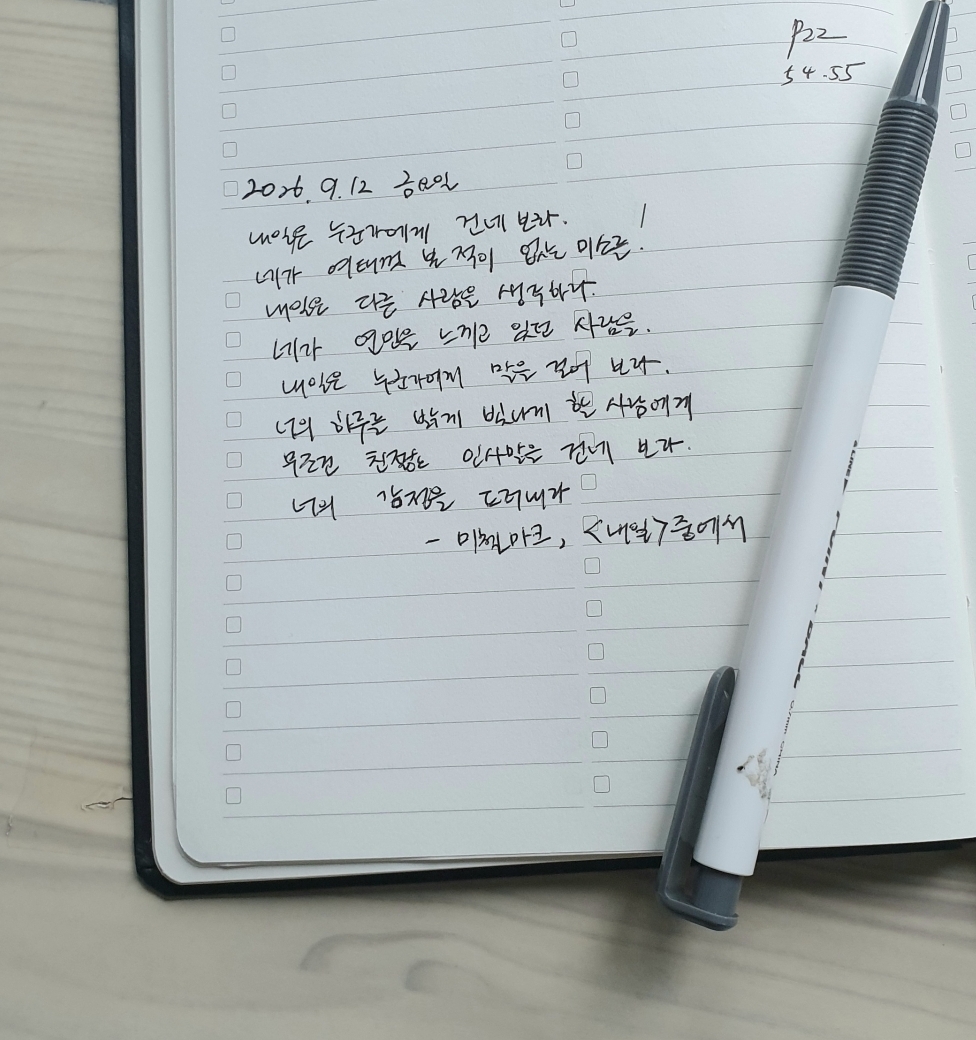 P22
54.55
2026. 9. 12 금요일
내일은 누군가에게 건네 보라.
네가 여태껏 본 적이 없는 미소를!
내일은 다른 사람을 생각하라.
네가 연민을 느끼고 있던 사람을.
내일은 누군가에게 말을 걸어 보라.
너의 하루를 밝게 빛나게 한 사람에게
무조건 친절한 인사말을 건네 보라.
너의 감정을 드러내라
- 미첼마크, <내일>중에서